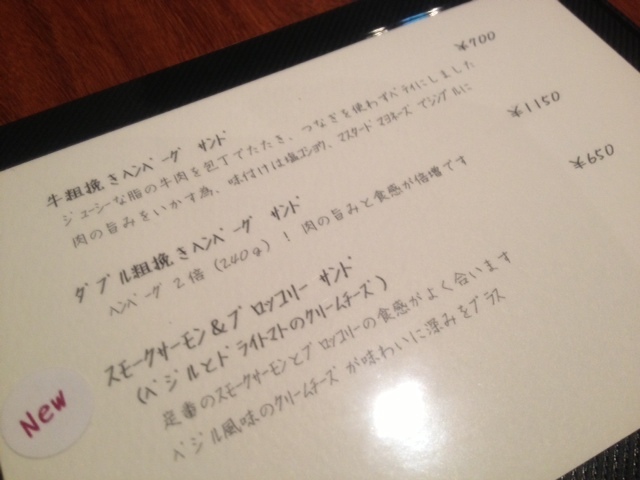 牛粗挽きハンバーグ サンド ¥700
ジューシーな脂の牛肉を包丁でたたき、つなぎを使わずパティにしました
肉の旨みをいかす為、味付けは塩コショウ、マスタードマヨネーズでシンプルに
ダブル粗挽きハンバーグ サンド ¥1150
ハンバーグ2倍(240g)！肉の旨みと食感が倍増です
スモークサーモン&ブロッコリー サンド ¥650
(バジルとドライトマトのクリームチーズ)
定番のスモークサーモンとブロッコリーの食感がよく合います
バジル風味のクリームチーズが味わいに深みをプラス
New